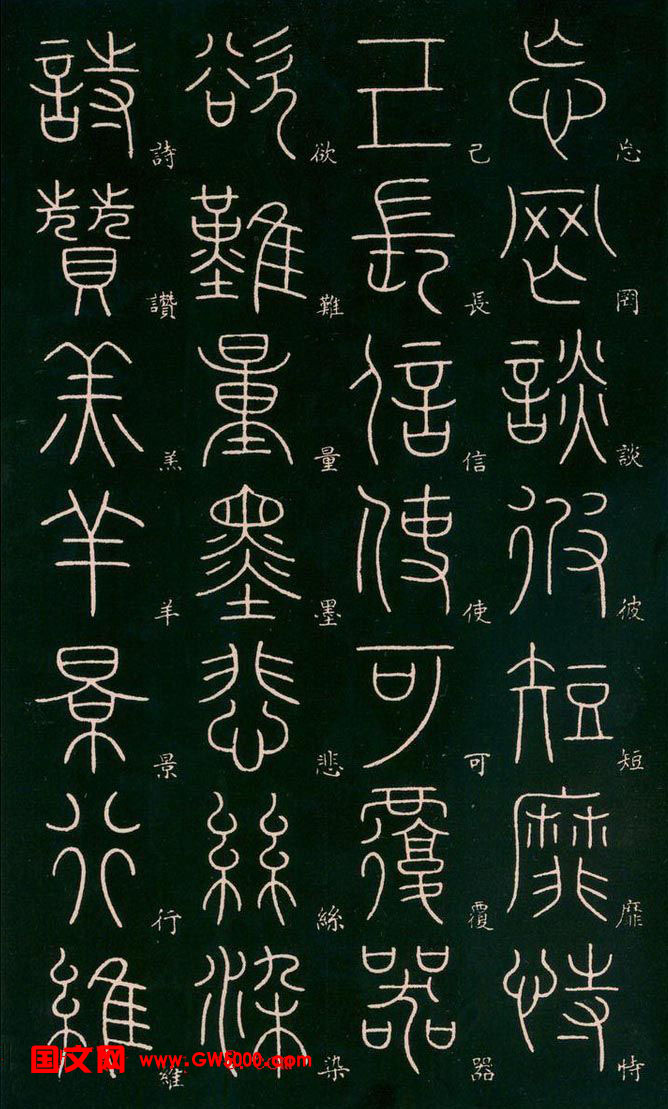 忘罔談彼短靡恃
己長信使可覆器
欲難量墨悲絲染
詩讚羔羊景行維
国文网 www.GW6000.com